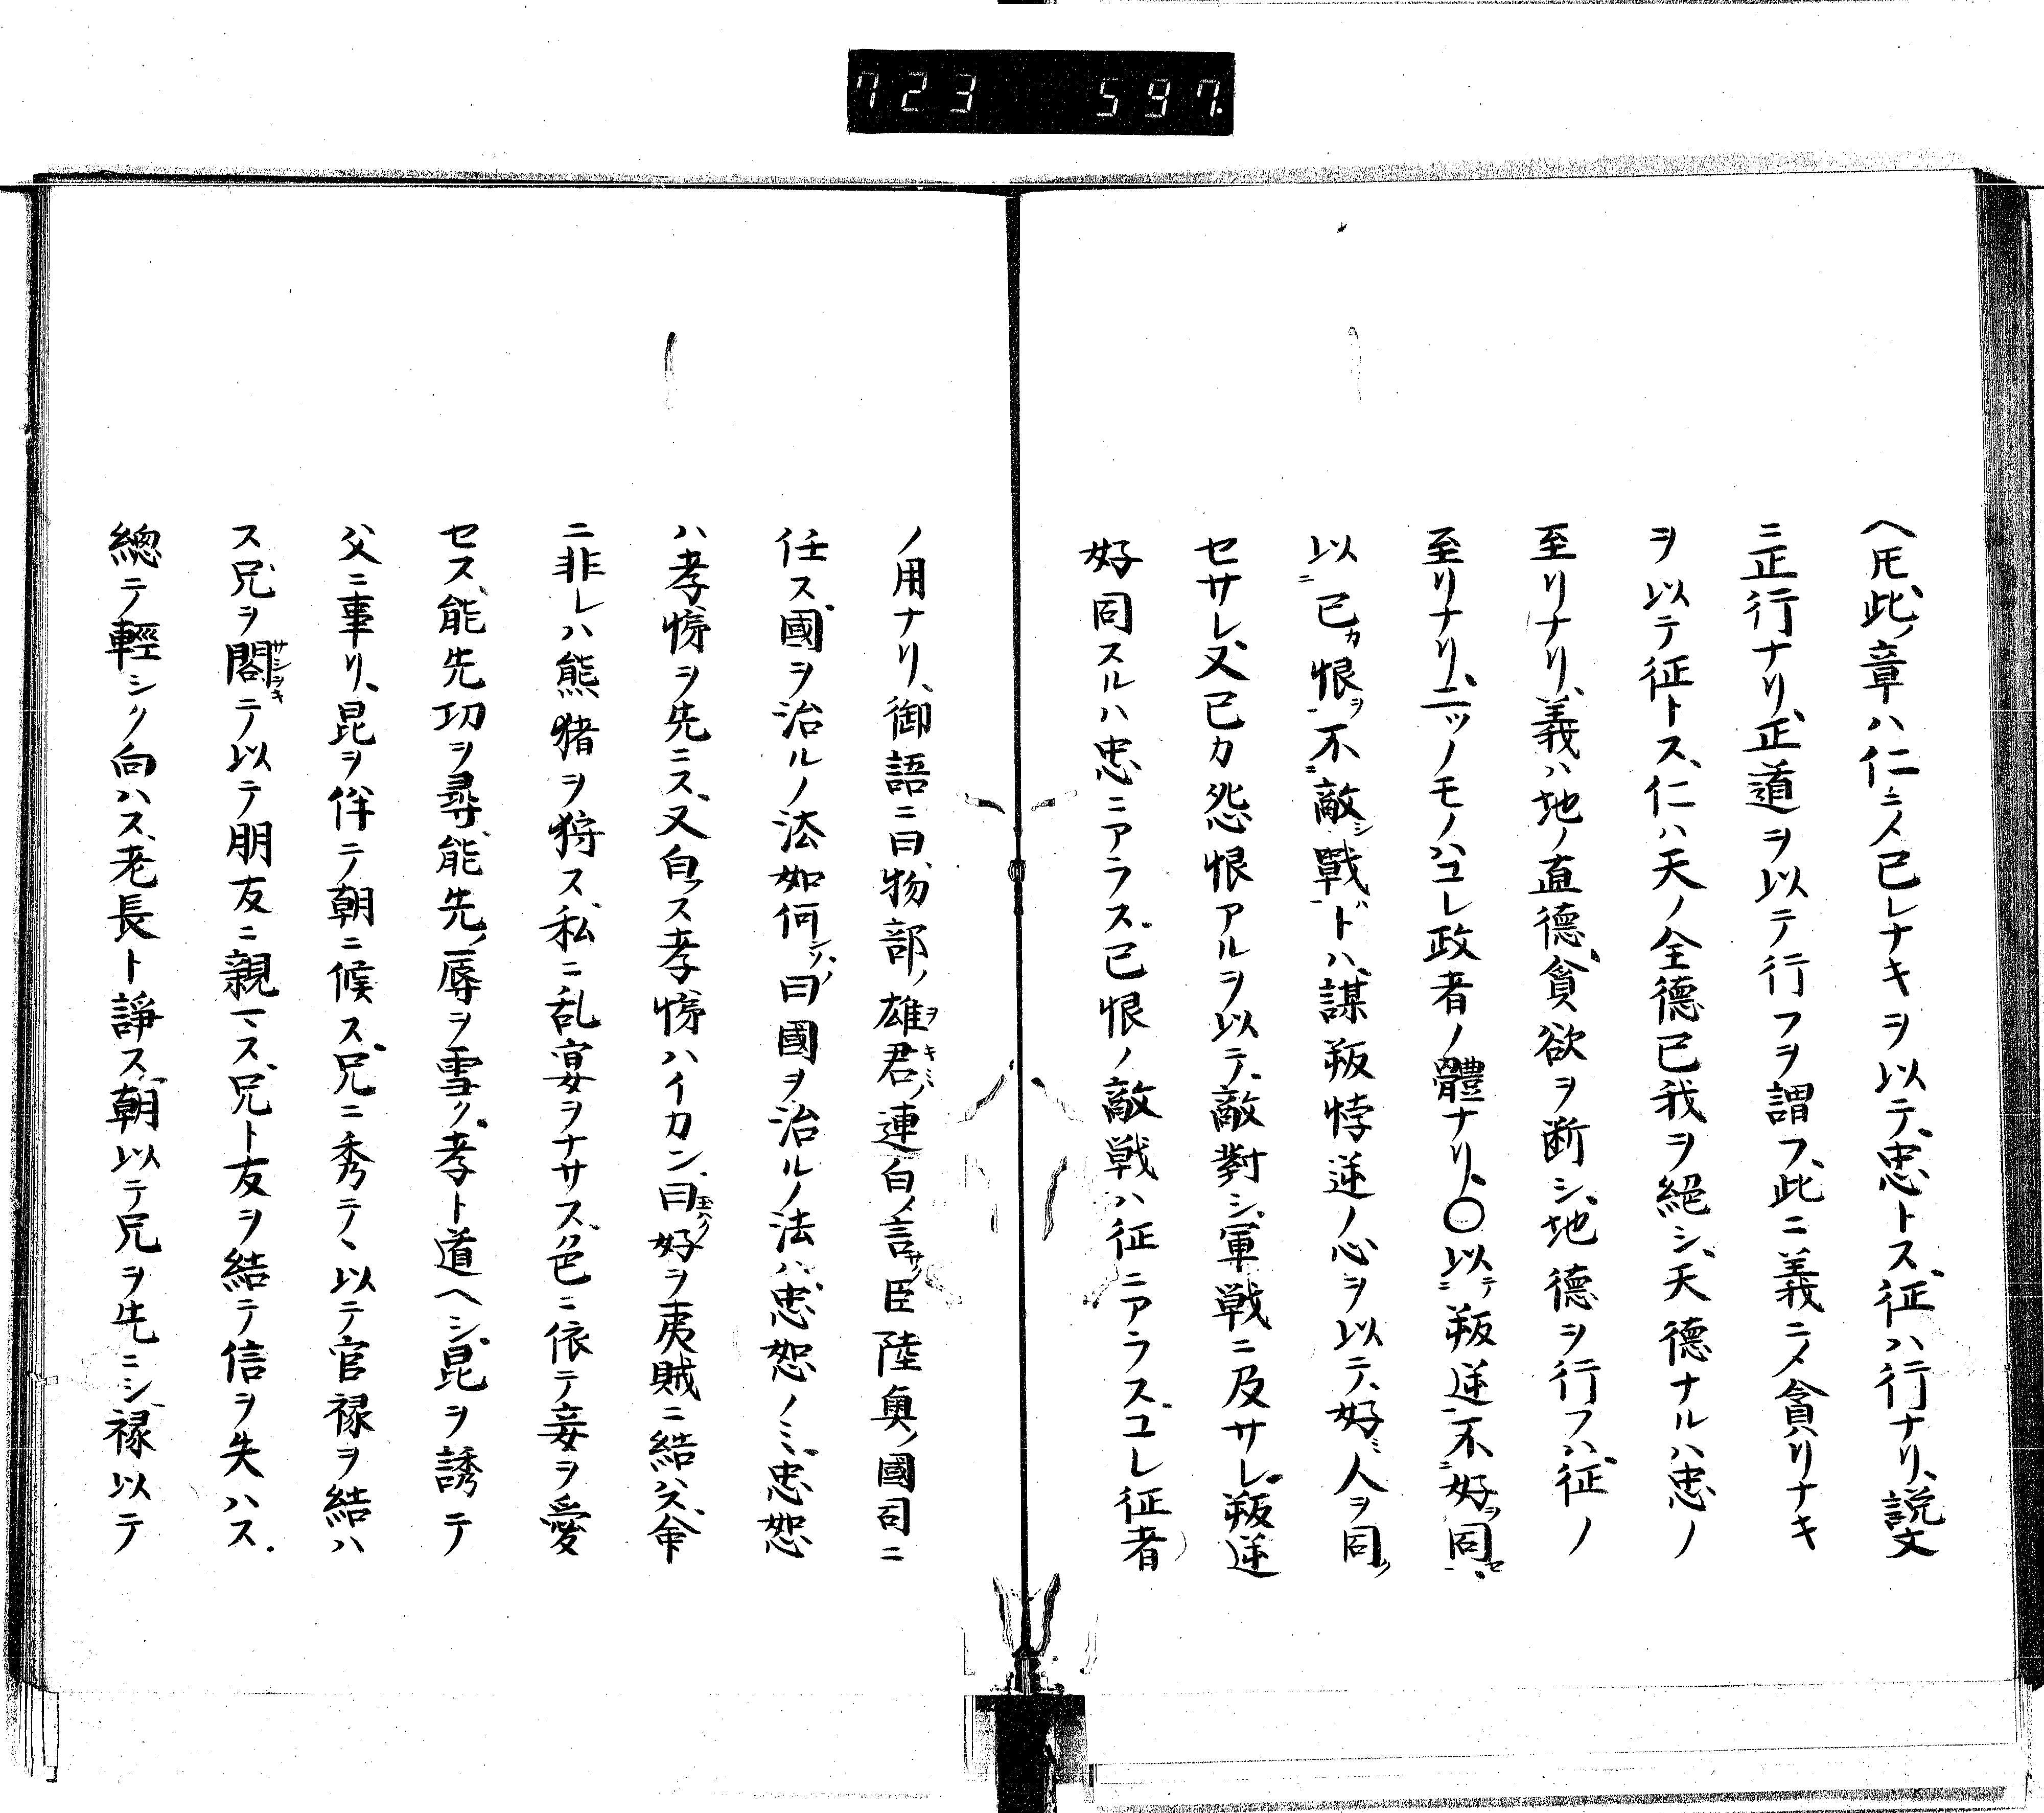 723 597.
ヘ𪜈、此ノ章ハ仁ニ〆己レナキヲ以テ、忠トス、征ハ行ナリ、説文
ニ正行ナリ、正道ヲ以テ行フヲ謂フ、此ニ義ニ〆貪リナキ
ヲ以テ征トス、仁ハ天ノ全德己我ヲ絕シ、天德ナルハ忠ノ
至リナリ、義ハ地ノ直德、貪欲ヲ断シ、地德ヲ行フハ、征ノ
至リナリ、二ツノモノハコレ政者ノ體ナリ、〇以テ叛逆不好ヲ同セハ
以ニ己カ恨ヲ不敵シ戰ドハ、謀叛悖逆ノ心ヲ以テ、好ミ人ヲ同ク
セサレ、又己カ怨恨アルヲ以テ、敵對シ、軍戦ニ及サレ、叛逆
好同スルハ忠ニアラス、己恨ノ敵戦ハ征ニアラス、コレ征者
ノ用ナリ、御語ニ曰、物部ノ雄君ノ連白ノ言サク臣陸奥ノ國司ニ
任ス、國ヲ治ルノ法如何シ、曰國ヲ治ルノ法ハ、忠恕ノミ、忠恕
ハ孝悌ヲ先ニス、又白ス孝悌ハイカン、曰玉ハク好ヲ夷賊ニ結ハス、命
ニ非レハ熊猪ヲ狩ス、私ニ乱宴ヲナサス、色ニ依テ妾ヲ愛
セス、能先功ヲ尋、能先ノ辱ヲ雪ク、孝ト道ヘシ、昆ヲ誘テ
父ニ事リ、昆ヲ伴テ朝ニ候ス、兄ニ秀テヽ以テ官禄ヲ結ハ
ス、兄ヲ閣サシヲキテ以テ朋友ニ親マス、兄ト友ヲ結テ信ヲ失ハス、
總テ輕シク向ハス、老長ト諍ス、朝以テ兄ヲ先ニシ、禄以テ